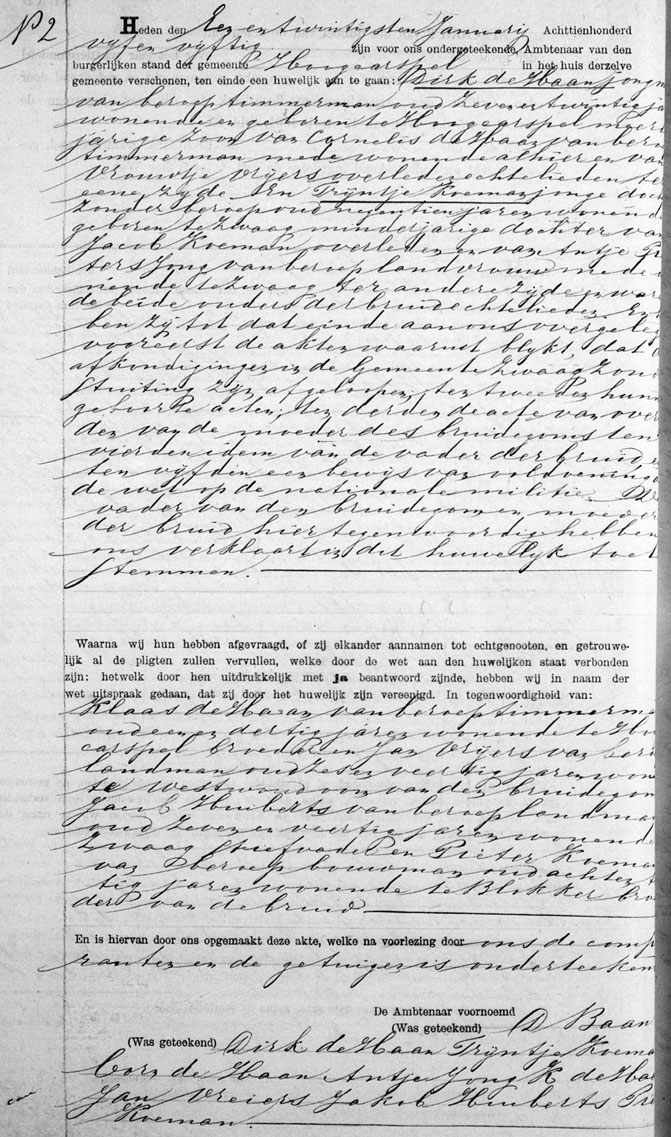 N° 2
Heden den Een en twintigsten Januarij Achttienhonderd
vijf en vijftig zijn voor ons ondergeteekende, Ambtenaar van den
burgerlijken stand der gemeente Hoogcarspel in het huis derzelve
gemeente verschenen, ten einde een huwelijk aan te gaan: Dirk de Haan jong
van beroep timmerman oud zeven en twintig ja
wonende en geboren te Hoogcarspel meer
jarige zoon van Cornelis de Haan van bero
timmerman mede wonende alhier en van
Vrouwtje Vrijers overleden echtelieden ter
eene zijde En Trijntje Koeman jonge doch
zonder beroep oud negentien jaren wonend
geboren te Zwaag minderjarige dochter van
Jacob Koeman overleden en van Antje Pie
ters Jong van beroep landvrouw mede
nende te Zwaag ter andere zijde en war
de beide ouders der bruid echtelieden. En
ben zij tot dat einde aan ons overgeleg
vooreerst de akten waaruit blykt, dat
afkondigingen in de Gemeente Zwaag zond
stuiting zijn afgeloopen; ten tweeden hun
geboorte acten; ten derden de acte van over
den van de moeder des bruidegoms ten
vierden idem van de vader der bruid e
ten vijfden een bewijs van voldoening
de wet op de nationale militie. De
vader van den bruidegom en moeder
der bruid hier tegenwoordig hebben
ons verklaart in dit huwelyk toe te
stemmen.
Waarna wij hun hebben afgevraagd, of zij elkander aannamen tot echtgenooten, en getrouwe-
lijk al de pligten zullen vervullen, welke door de wet aan den huwelijken staat verbonden
zijn: hetwelk door hen uitdrukkelijk met ja beantwoord zijnde, hebben wij in naam der
wet uitspraak gedaan, dat zij door het huwelijk zijn vereenigd. In tegenwoordigheid van:
Klaas de Haan van beroep timmerma
oud een en dertig jaren wonende te Hoo
carspel broeder en Jan Vrijers van bero
landman oud zes en veertig jaren won
te Westwoud oom van den bruidegom
Jacob Huiberts van beroep landma
oud zeven en veertig jaren wonende
Zwaag stiefvader en Pieter Koeman
van beroep bouwman oud acht en
tig jaren wonende te Blokker bro
der van de bruid
En is hiervan door ons opgemaakt deze akte, welke na voorlezing door ons de comp
ranten en de getuigen is onderteeken
De Ambtenaar voornoemd
(Was geteekend) D Baan
(Was geteekend) Dirk de Haan Trijntje Koema
Corn de Haan Antje Jong K de Haa
Jan Vreiers Jakob Huiberts Pie
Koeman.